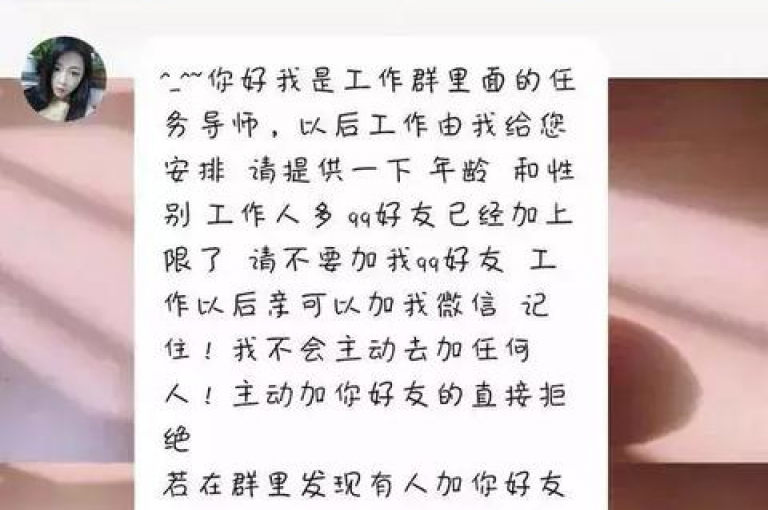 ^_^~你好我是工作群里面的任
务导师，以后工作由我给您
安排 请提供一下 年龄 和性
别 工作人多 qq好友已经加上
限了 请不要加我qq好友 工
作以后亲可以加我微信 记
住！我不会主动去加任何
人！主动加你好友的直接拒
绝
若在群里发现有人加你好友